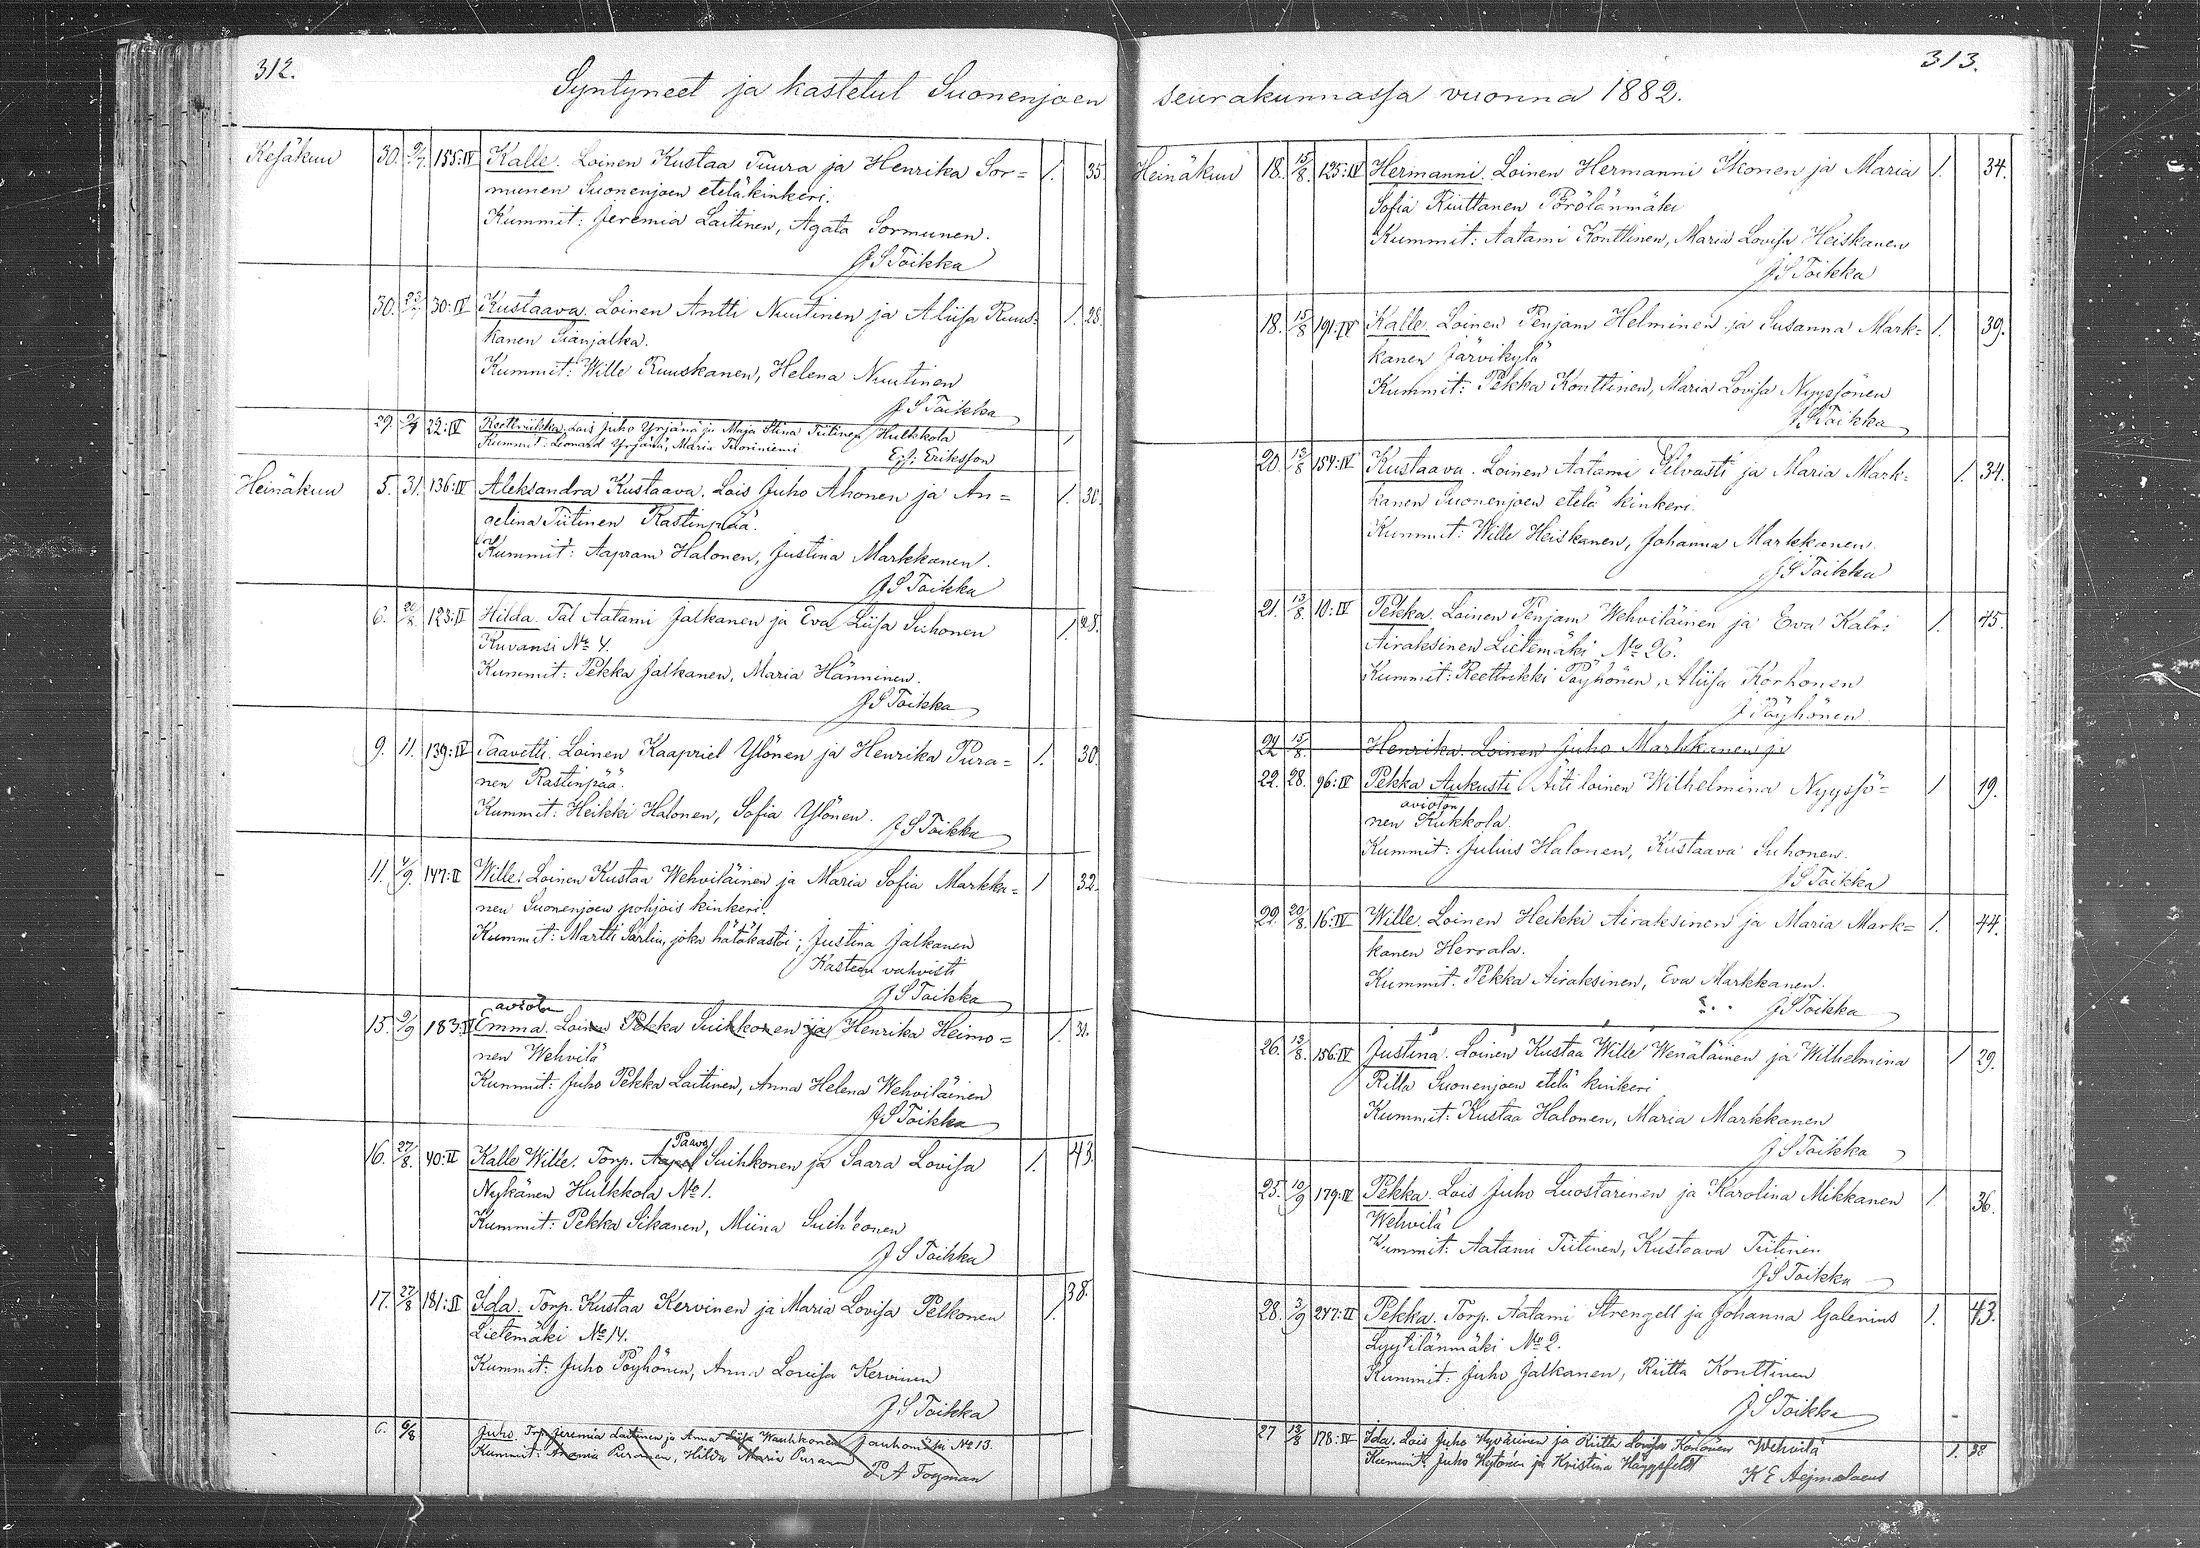 312.
Syntyneet ja kastetut Suonenjoen
Kesäkuu 30. 9/7. 155:IV Kalle. Loinen Kustaa Tuura ja Henrika Sor= 1. 35.
munen Suonenjoen eteläkinkeri.
Kummit: Jeremia Laitinen, Agata Sormunen.
J S Toikka
30. 23/7 30:IV Kustaava. Loinen Antti Nuutinen ja Aliisa Ruus= 1. 28.
kanen Sianjalka.
Kummit: Wille Ruuskanen, Helena Nuutinen
J S Toikka
29 22:IV Lois Juho Yrjänä ja Maja Stina Tiitinen Hulkkola 1
Kummit: Leonard Yrjänä, Maria
Eriksson
Heinäkuu 5. 31. 136:IV Aleksandra Kustaava. Lois Juho Ahonen ja An= 1. 30.
gelina Tiitinen Rastinpää.
Kummit: Aapram Halonen, Justina Markkanen.
J S Toikka
6. 20/8. 123:II Hilda. Tal Aatami Jalkanen ja Eva Liisa Suhonen 1. 28.
Kuvansi No 4.
Kummit: Pekka Jalkanen, Maria Hänninen.
J S Toikka
9. 11. 139:IV Taavetti. Loinen Kaapriel Ylönen ja Henrika Pura= 1. 30.
nen Rastinpää.
Kummit: Heikki Halonen, Sofia Ylönen.
J S Toikka
11. 1/9. 147:II Wille. Loinen Kustaa Wehviläinen ja Maria Sofia Markka= 1 32.
nen Suonenjoen pohjois kinkeri.
Kummit: Martti Särlin, joka hätäkastoi; Justina Jalkanen
Kasteen vahvisti
J S Toikka
avioton
15. 3/9 183:II Emma. Loinen Pekka Suihkonen ja Henrika Heimo= 1. 31.
nen Wehvilä
Kummit: Juho Pekka Laitinen, Anna Helena Wehviläinen
J S Toikka
Paavo
16. 27/8. 40:II Kalle Wille. Torp. Aapel Suihkonen ja Saara Lovisa 1. 43.
Nykänen Hulkkola No 1.
Kummit: Pekka Sikanen, Miina Suihkonen
J S Toikka
17. 27/8 181:II Ida. Torp. Kustaa Kervinen ja Maria Lovisa Pelkonen 1. 38.
Lietemäki No 14.
Kummit: Juho Pöyhönen, Anna Lovisa Kervinen
J S Toikka
6. 6/8 Juho Torp Jeremia Laitinen ja Anna Liisa Wauhkonen Jauhomäki No 13.
Kummit: Anania Puranen, Hilda Maria Puranen
P A Fogman
313.
seurakunnassa vuonna 1882.
Heinäkuu 18. 15/8. 125:IV Hermanni. Loinen Hermanni Ikonen ja Maria 1. 34.
Sofia Riuttanen Pörölänmäki
Kummit: Aatami Konttinen, Maria Lovisa Heiskanen
J S Toikka
18. 15/8 191:IV Kalle. Loinen Penjam Helminen ja Susanna Mark= 1. 39.
kanen Järvikylä
Kummit: Pekka Konttinen, Maria Lovisa Nyyssönen
J S Toikka
20. 13/8 154:IV Kustaava. Loinen Aatami Silvasti ja Maria Mark= 1. 34.
kanen Suonenjoen etelä kinkeri.
Kummit: Wille Heiskanen, Johanna Markkanen.
J S Toikka
21. 13/8 10:IV Pekka. Loinen Penjam Wehviläinen ja Eva Katri 1. 45.
Airaksinen Lietemäki No 26.
Kummit: Reettrikki Pöyhönen, Aliisa Korhonen
J Pöyhönen
22 15/8. Henrika. Loinen Juho Markkanen ja
22. 28. 96:IV Pekka Aukusti Äiti loinen Wilhelmina Nyyssö= 1 19.
avioton
nen Kukkola.
Kummit: Julius Halonen, Kustaava Suhonen.
J S Toikka
22. 20/8. 16:IV Wille. Loinen Heikki Airaksinen ja Maria Mark= 1. 44.
kanen Herrala.
Kummit. Pekka Airaksinen, Eva Markkanen.
J S Toikka
26. 13/8. 156:IV Justina. Loinen Kustaa Wille Wenäläinen ja Wilhelmina 1 29.
Ritta Suonenjoen etelä kinkeri
Kummit: Kustaa Halonen, Maria Markkanen
J S Toikka
25. 10/9 179:IV Pekka. Lois Juho Luostarinen ja Karolina Mikkanen 1. 36.
Wehvilä
Kummit: Aatami Tiitinen, Kustaava Tiitinen
J S Toikka
28. 3/9 247:II Pekka. Torp. Aatami Strengell ja Johanna Galenius 1. 43.
Lyytilänmäki No 2.
Kummit: Juho Jalkanen, Riitta Konttinen
J S Toikka
27 13/8 178:IV Ida. Lois Juho Hyvärinen ja Riitta Lovisa Könönen Wehvilä 1. 38
Kummit. Juho Hytönen ja Kristina Häggsfeldt
K E Aejmelaeus